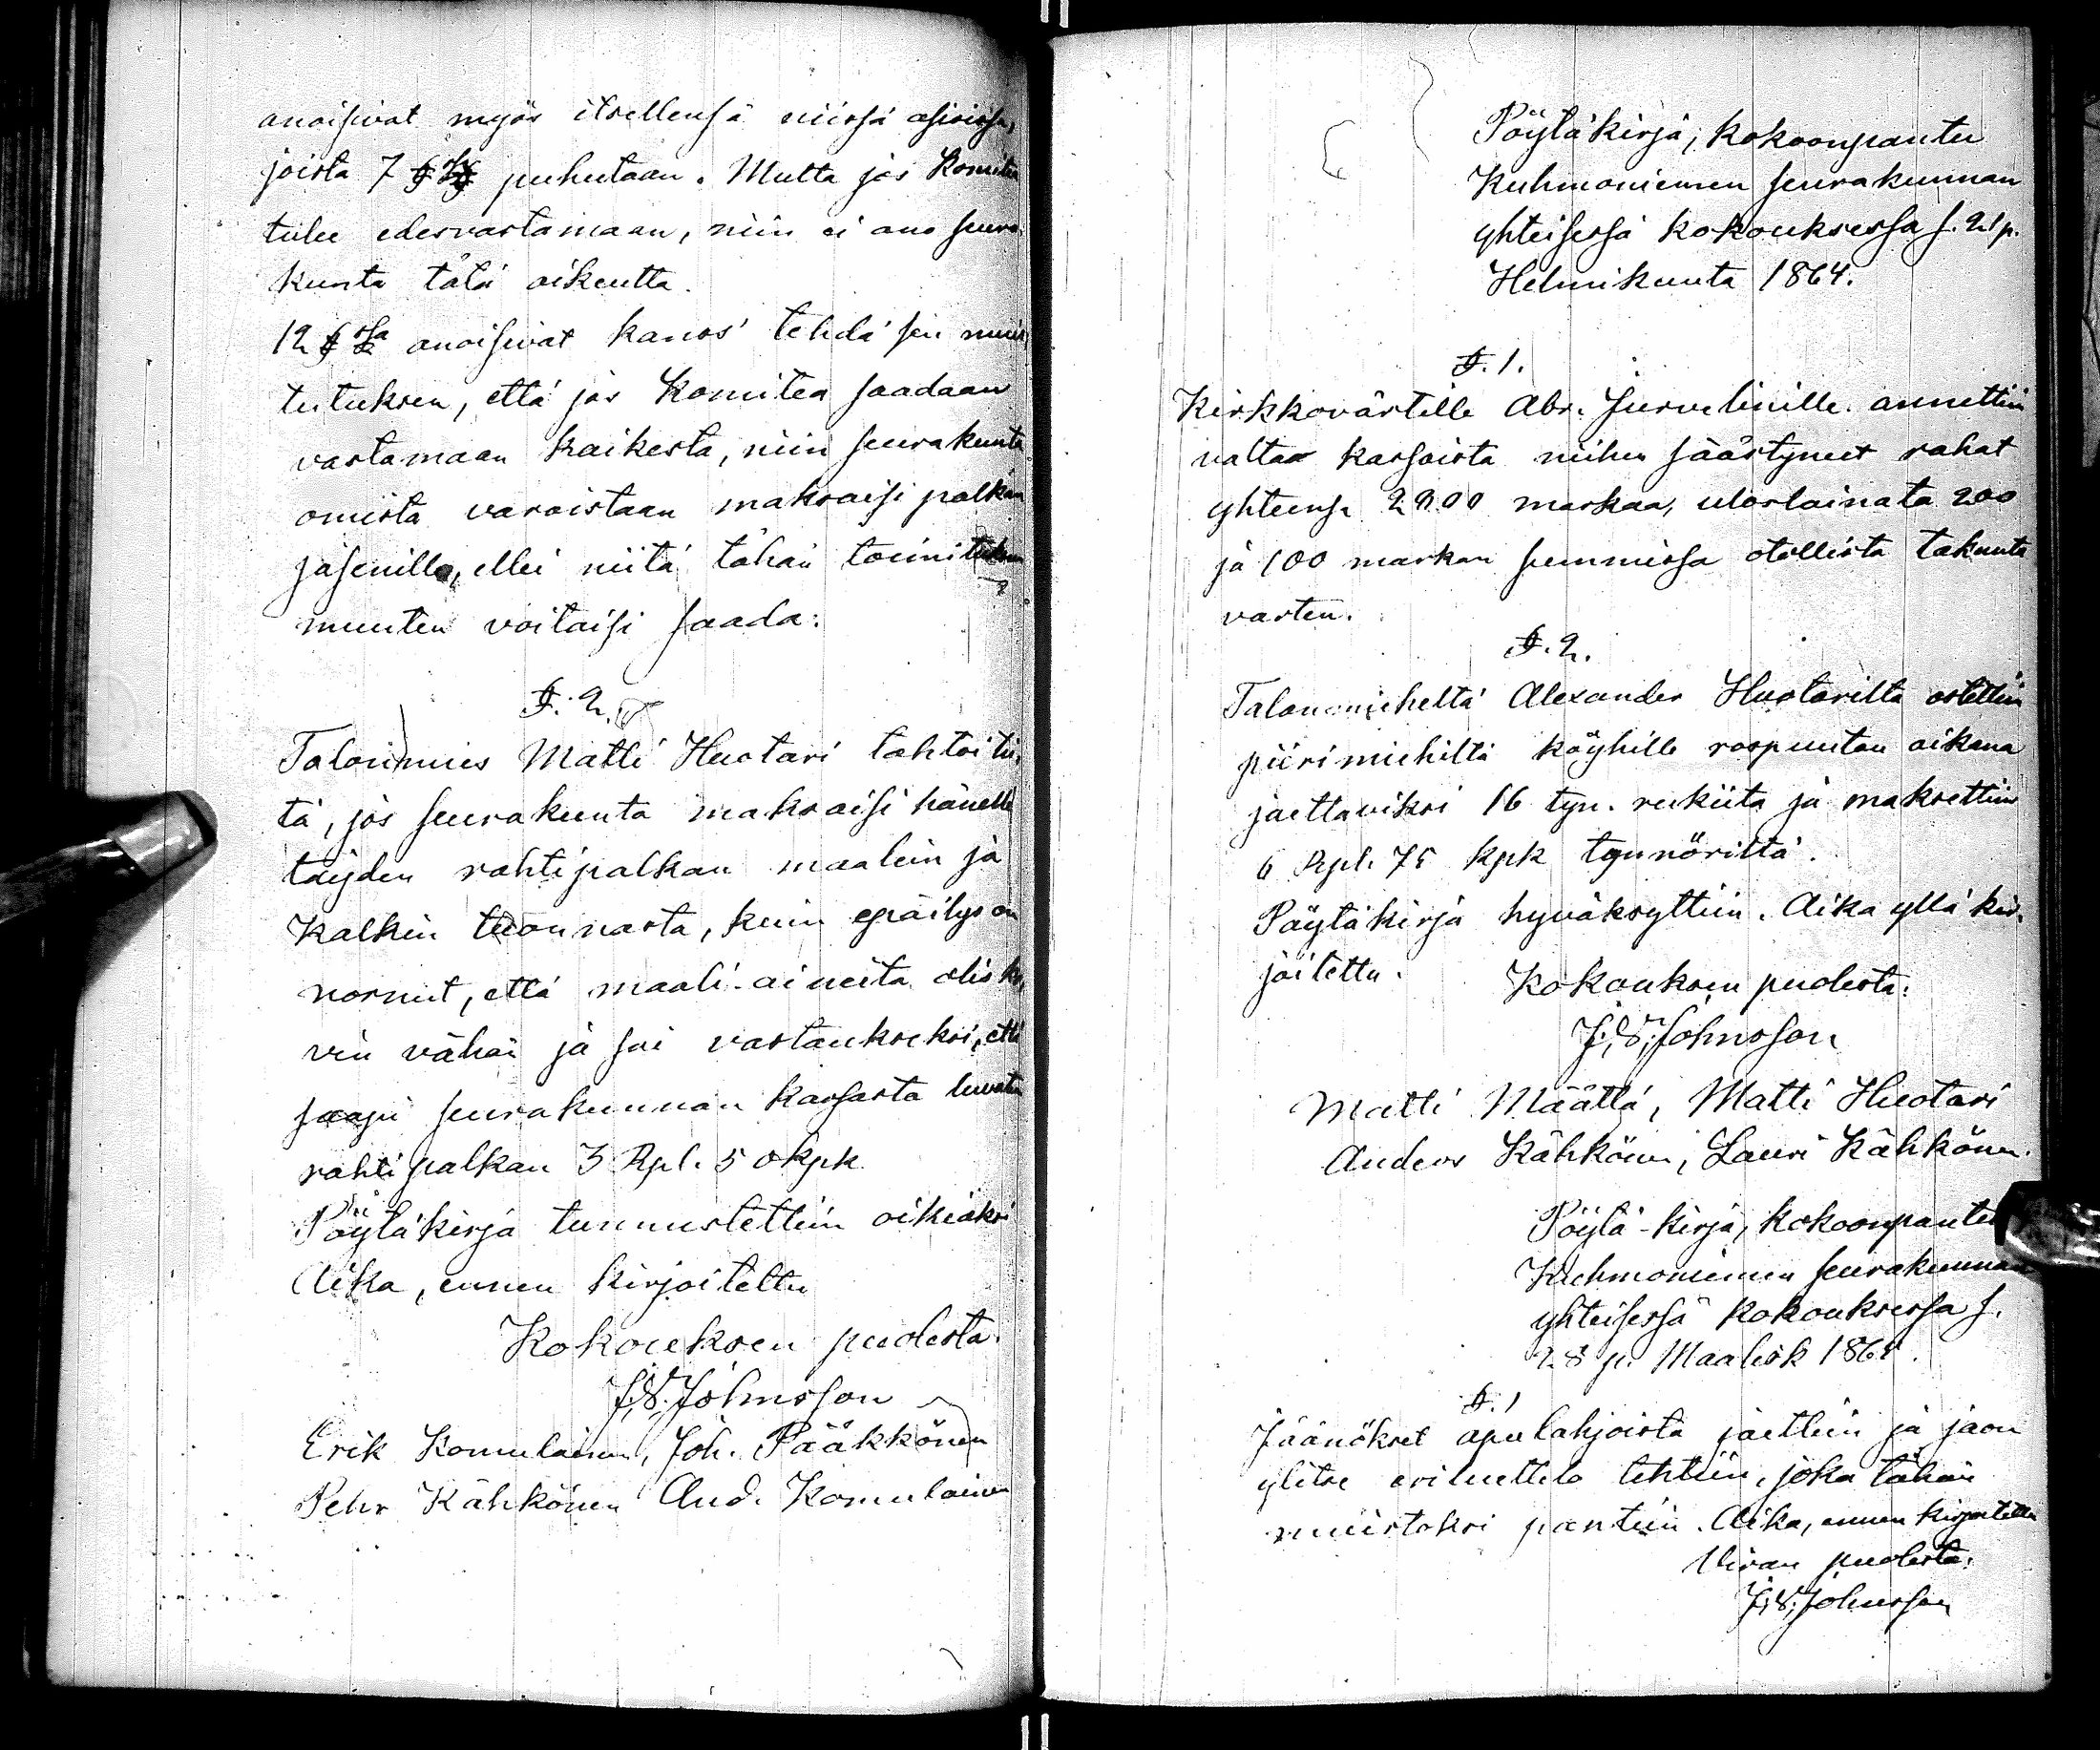 anoisivat myös itsellensä niissä asioissa,
joista 7 § puhutaan. Mutta jos Komitea
tulee edesvastamaan, niin ei ano seura-
kunta tätä oikeutta.
12 § ssa anoisivat kanss' tehdä sen muis-
tutuksen, että jos Komitea saadaan
vastamaan kaikesta, niin seurakunta
omista varoistaan maksaisi palkan
jäsenille, ellei niitä tähän toimitukseen
muuten voitaisi saada.
§. 2.
Talonmies Matti Huotari tahtoi tie-
tä, jos seurakunta maksaisi hänelle
täyden rahtipalkan maalein ja
Kalkin tuonnasta, kuin epäilys on
nosnut, että maali-aineita olis ko-
vin vähän ja sai vastaukseksi, että
saapi seurakunnan kassasta luvatun
rahtipalkan 3 Rpl. 50 kpk.
Pöytäkirja tunnustettiin oikiaksi
Aika, ennen kirjoitettu
Kokouksen puolesta.
J. V. Johnsson
Erik Komulainen, Joh. Pääkkönen
Pehr Kähkönen And. Komulainen
Pöytäkirja, kokoonpantu
Kuhmoniemen seurakunnan
yhteisessä kokouksessa s. 21 p.
Helmikuuta 1864.
§. 1.
Kirkkovärtille Abr. Juvelinille annettiin
valtaa kassoista niihin säästyneet rahat
yhteensä 2900 markaa, uloslainata 200
ja 100 markan summissa otollista takuuta
vasten.
§. 2.
Talonmieheltä Alexander Huotarilta ostettiin
piirimiehiltä köyhille rospuuton aikana
jaettaviksi 16 tyn. rukiita ja maksettiin
6 Rpl. 75 kpk tynnöriltä.
Pöytäkirja hyväksyttiin. Aika yllä kir-
joitettu.
Kokouksen puolesta:
J. V. Johnsson
Matti Määttä, Matti Huotari
Anders Kähkönen, Lauri Kähkönen.
Pöytä-kirja, kokoonpantu
Kuhmoniemen seurakunnan
yhteisessä kokouksessa s.
28 p. Maalisk 1864.
§. 1
Jäänökset apulahjoista jaettiin ja jaon
ylitse eriluettelo tehtiin, joka tähän
muistoksi pantiin. Aika, ennen kirjoitettu
Viran puolesta.
J. V. Johnsson